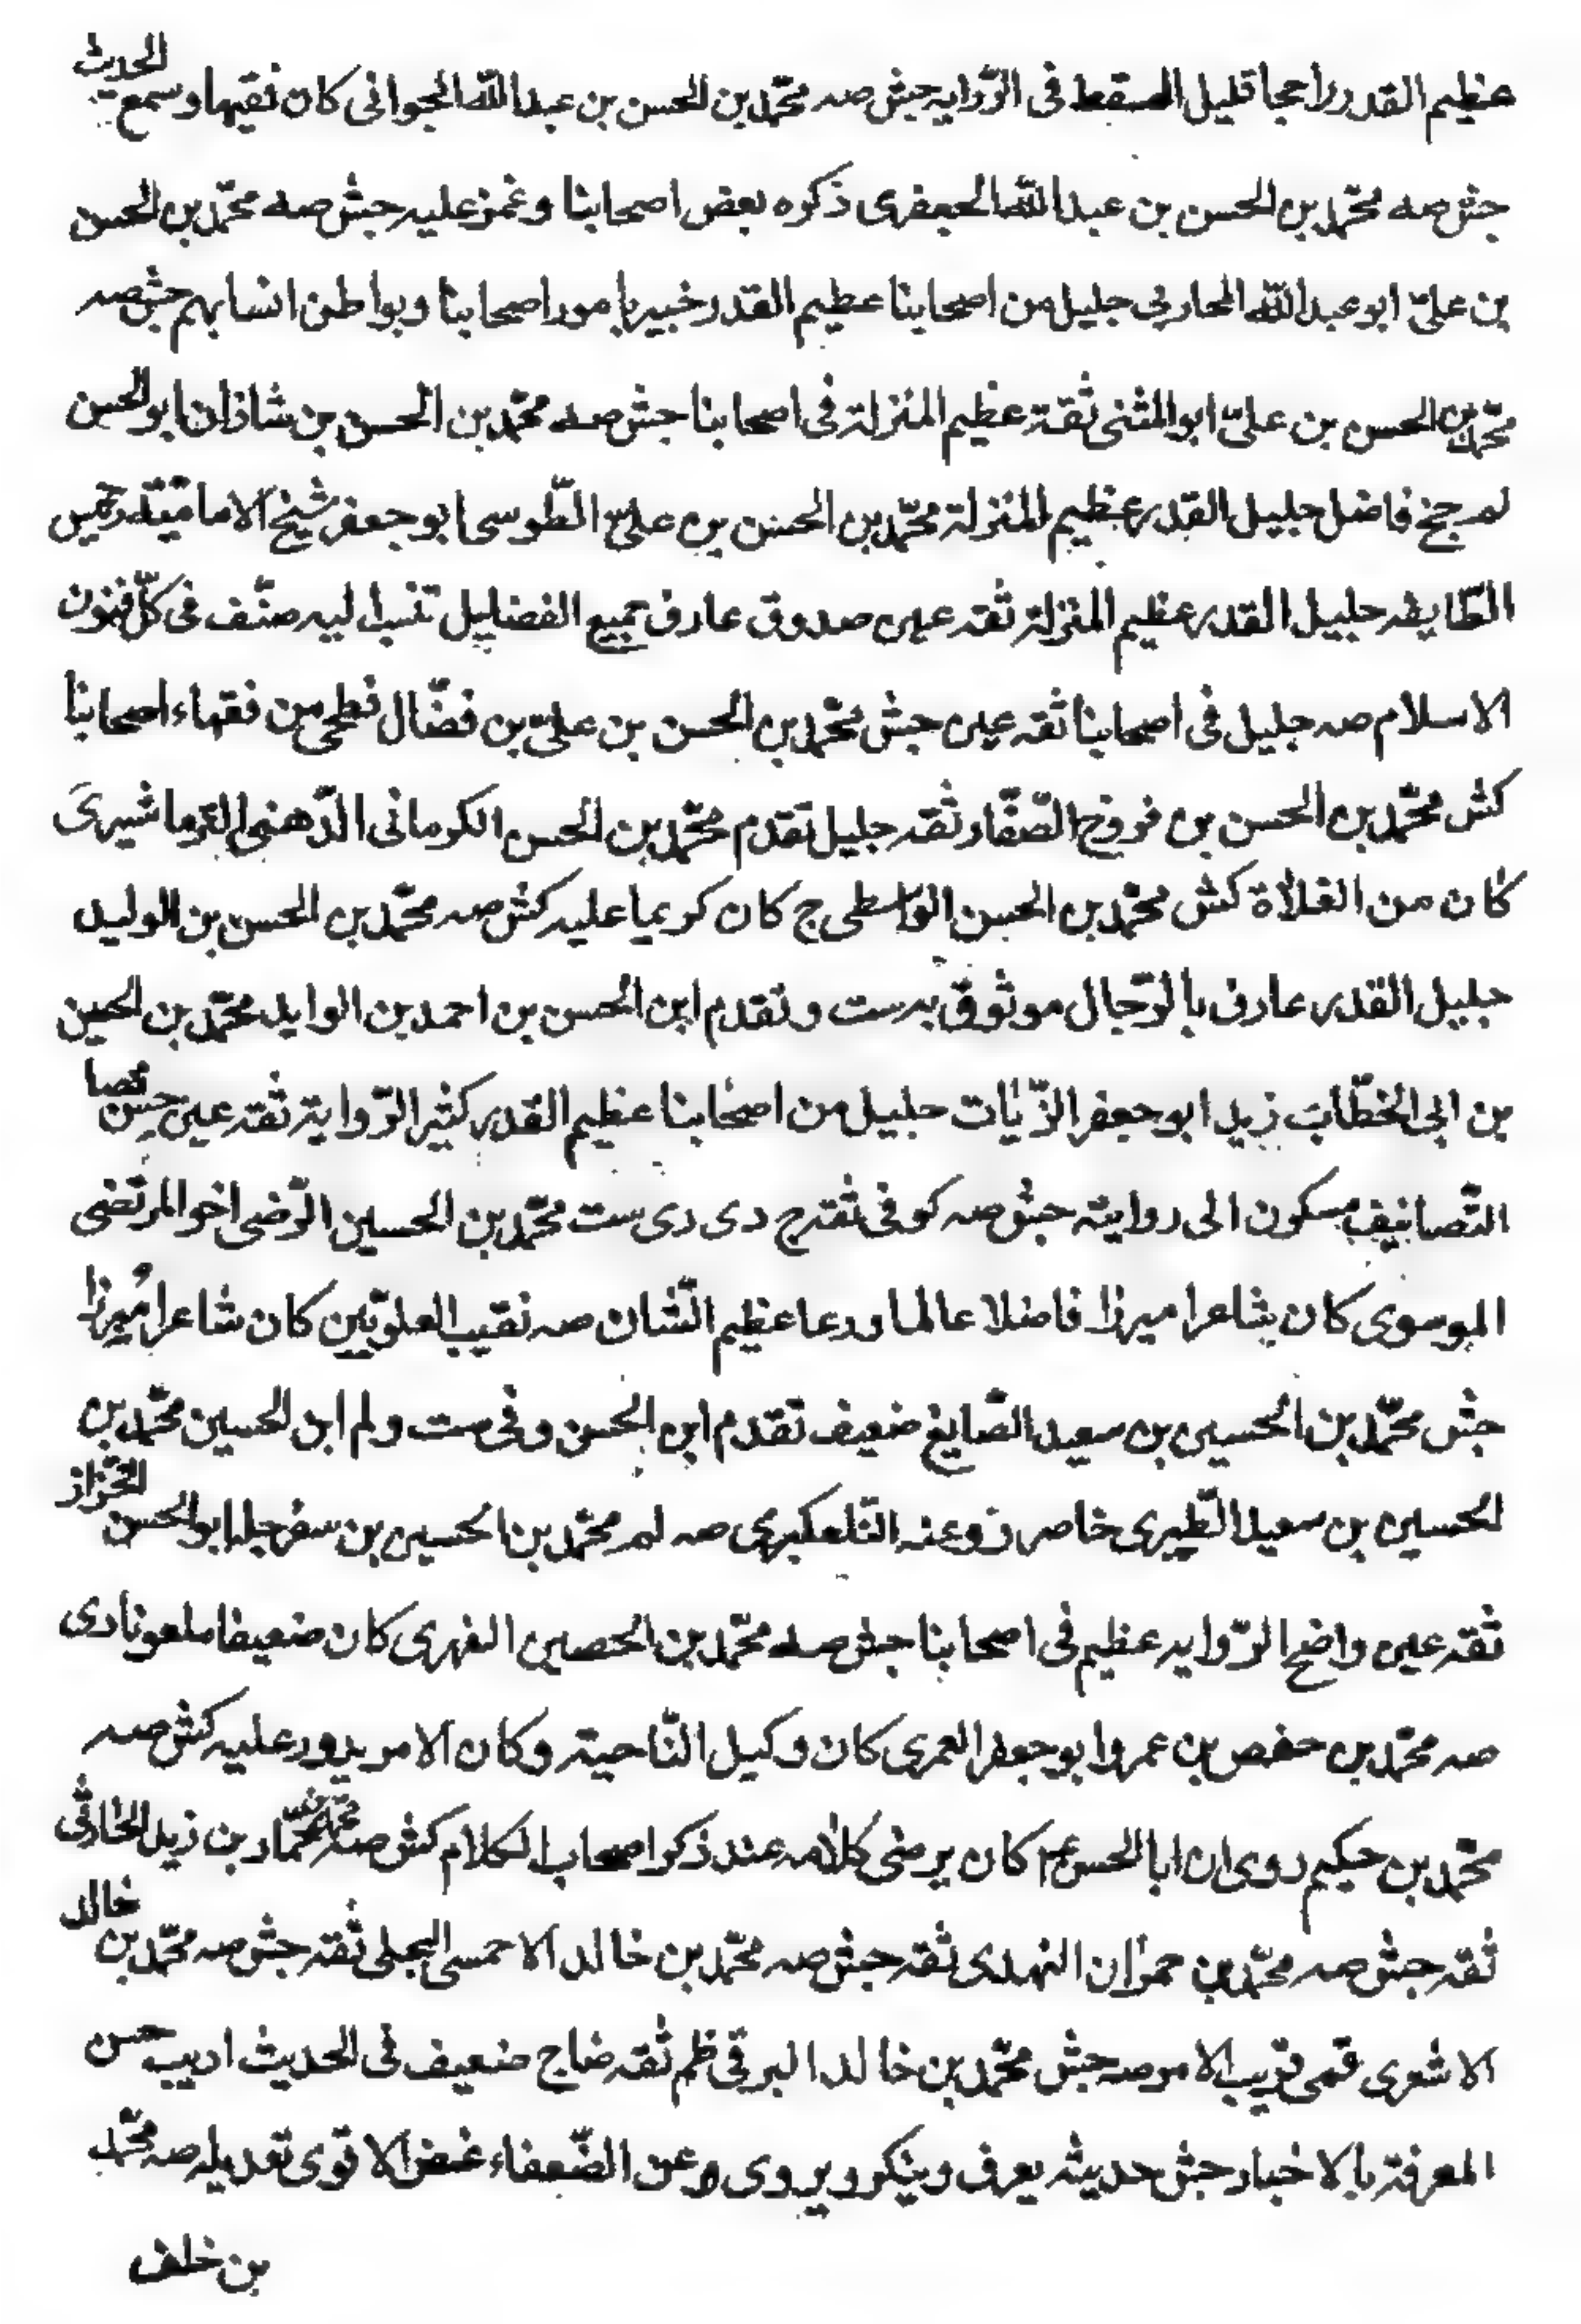 عظيم القدر راجحا قليل السقط فى الرّوايه جش صه محمّد بن الحسن بن عبد اللّه الجوانى كان فقيها وسمع الحديث
جش صه محمّد بن الحسن بن عبد اللّه الجعفرى ذكره بعض اصحابنا وغمز عليه جش صه محمّد بن الحسن
بن علىّ ابو عبد اللّه المحاربى جليل من اصحابنا عظيم القدر خبير بامور اصحابنا وبواطن انسابهم جش صه
محمّد بن الحسن بن علىّ ابو المثنى ثقة عظيم المنزلة فى اصحابنا جش صه محمّد بن الحسن بن شاذان ابو الحسن
لم جخ فاضل جليل القدر عظيم المنزلة محمّد بن الحسن بن علىّ الطّوسى ابو جعفر شيخ الامامية رئيس
الطّايفه جليل القدر عظيم المنزلة ثقه عين صدوق عارف بجميع الفضايل تنسب اليه صنّف فى كلّ فنون
الاسلام صه جليل فى اصحابنا ثقه عين جش محمّد بن الحسن بن علىّ بن فضّال فطحى من فقهاء اصحابنا
كش محمّد بن الحسن بن فروخ الصّفّار ثقه جليل تقدم محمّد بن الحسن الكرمانى الدّهنى النرماشيرى
كان من الغلاة كش محمّد بن الحسن الواسطى ج كان كريما عليه كش صه محمّد بن الحسن بن الوليد
جليل القدر عارف بالرّجال موثوق به ست وتقدم ابن الحسن بن احمد بن الوليد محمّد بن الحسين
بن ابى الخطّاب زيد ابو جعفر الزّيّات جليل من اصحابنا عظيم القدر كثير الرّواية ثقة عين حسن
التّصانيف مسكون الى روايته جش صه كوفى ثقة ج دى رى ست محمّد بن الحسين الرّضى اخو المرتضى
الموسوى كان شاعرا مبرزا فاضلا عالما ورعا عظيم الشّان صه نقيب العلويّين كان شاعرا مبرزا
جش محمّد بن الحسين بن سعيد الصّايغ ضعيف تقدم ابن الحسن وفى ست ولم ابن الحسين محمّد بن
الحسين بن سعيد الطّبرى خاصى روى عنه التّلعكبرى صه لم محمّد بن الحسين بن سفرجله ابو الحسن الخزّاز
ثقه عين واضح الرّوايه عظيم فى اصحابنا جش صه محمّد بن الحصين الفهرى كان ضعيفا ملعونا دى
صه محمّد بن حفص بن عمرو ابو جعفر العمرى كان وكيل النّاحية وكان الامر يدور عليه كش صه
محمّد بن حكيم روى ان ابا الحسن عم كان يرضى كلامه عند ذكر اصحاب الكلام كش صه محمّد بن حمّاد بن زيد الحارثى
ثقه جش صه محمّد بن حمران النهدى ثقه جش صه محمّد بن خالد الاحمسى البجلى ثقه جش صه محمّد بن خالد
الاشعرى قمى قريب الامر صه جش محمّد بن خالد البرقى ظم ثقه ضا ج ضعيف فى الحديث اديب حسن
المعرفة بالاخبار جش حديثه يعرف وينكر ويروى عن الضّعفاء غض الاقوى تعديله صه محمّد
بن خلف